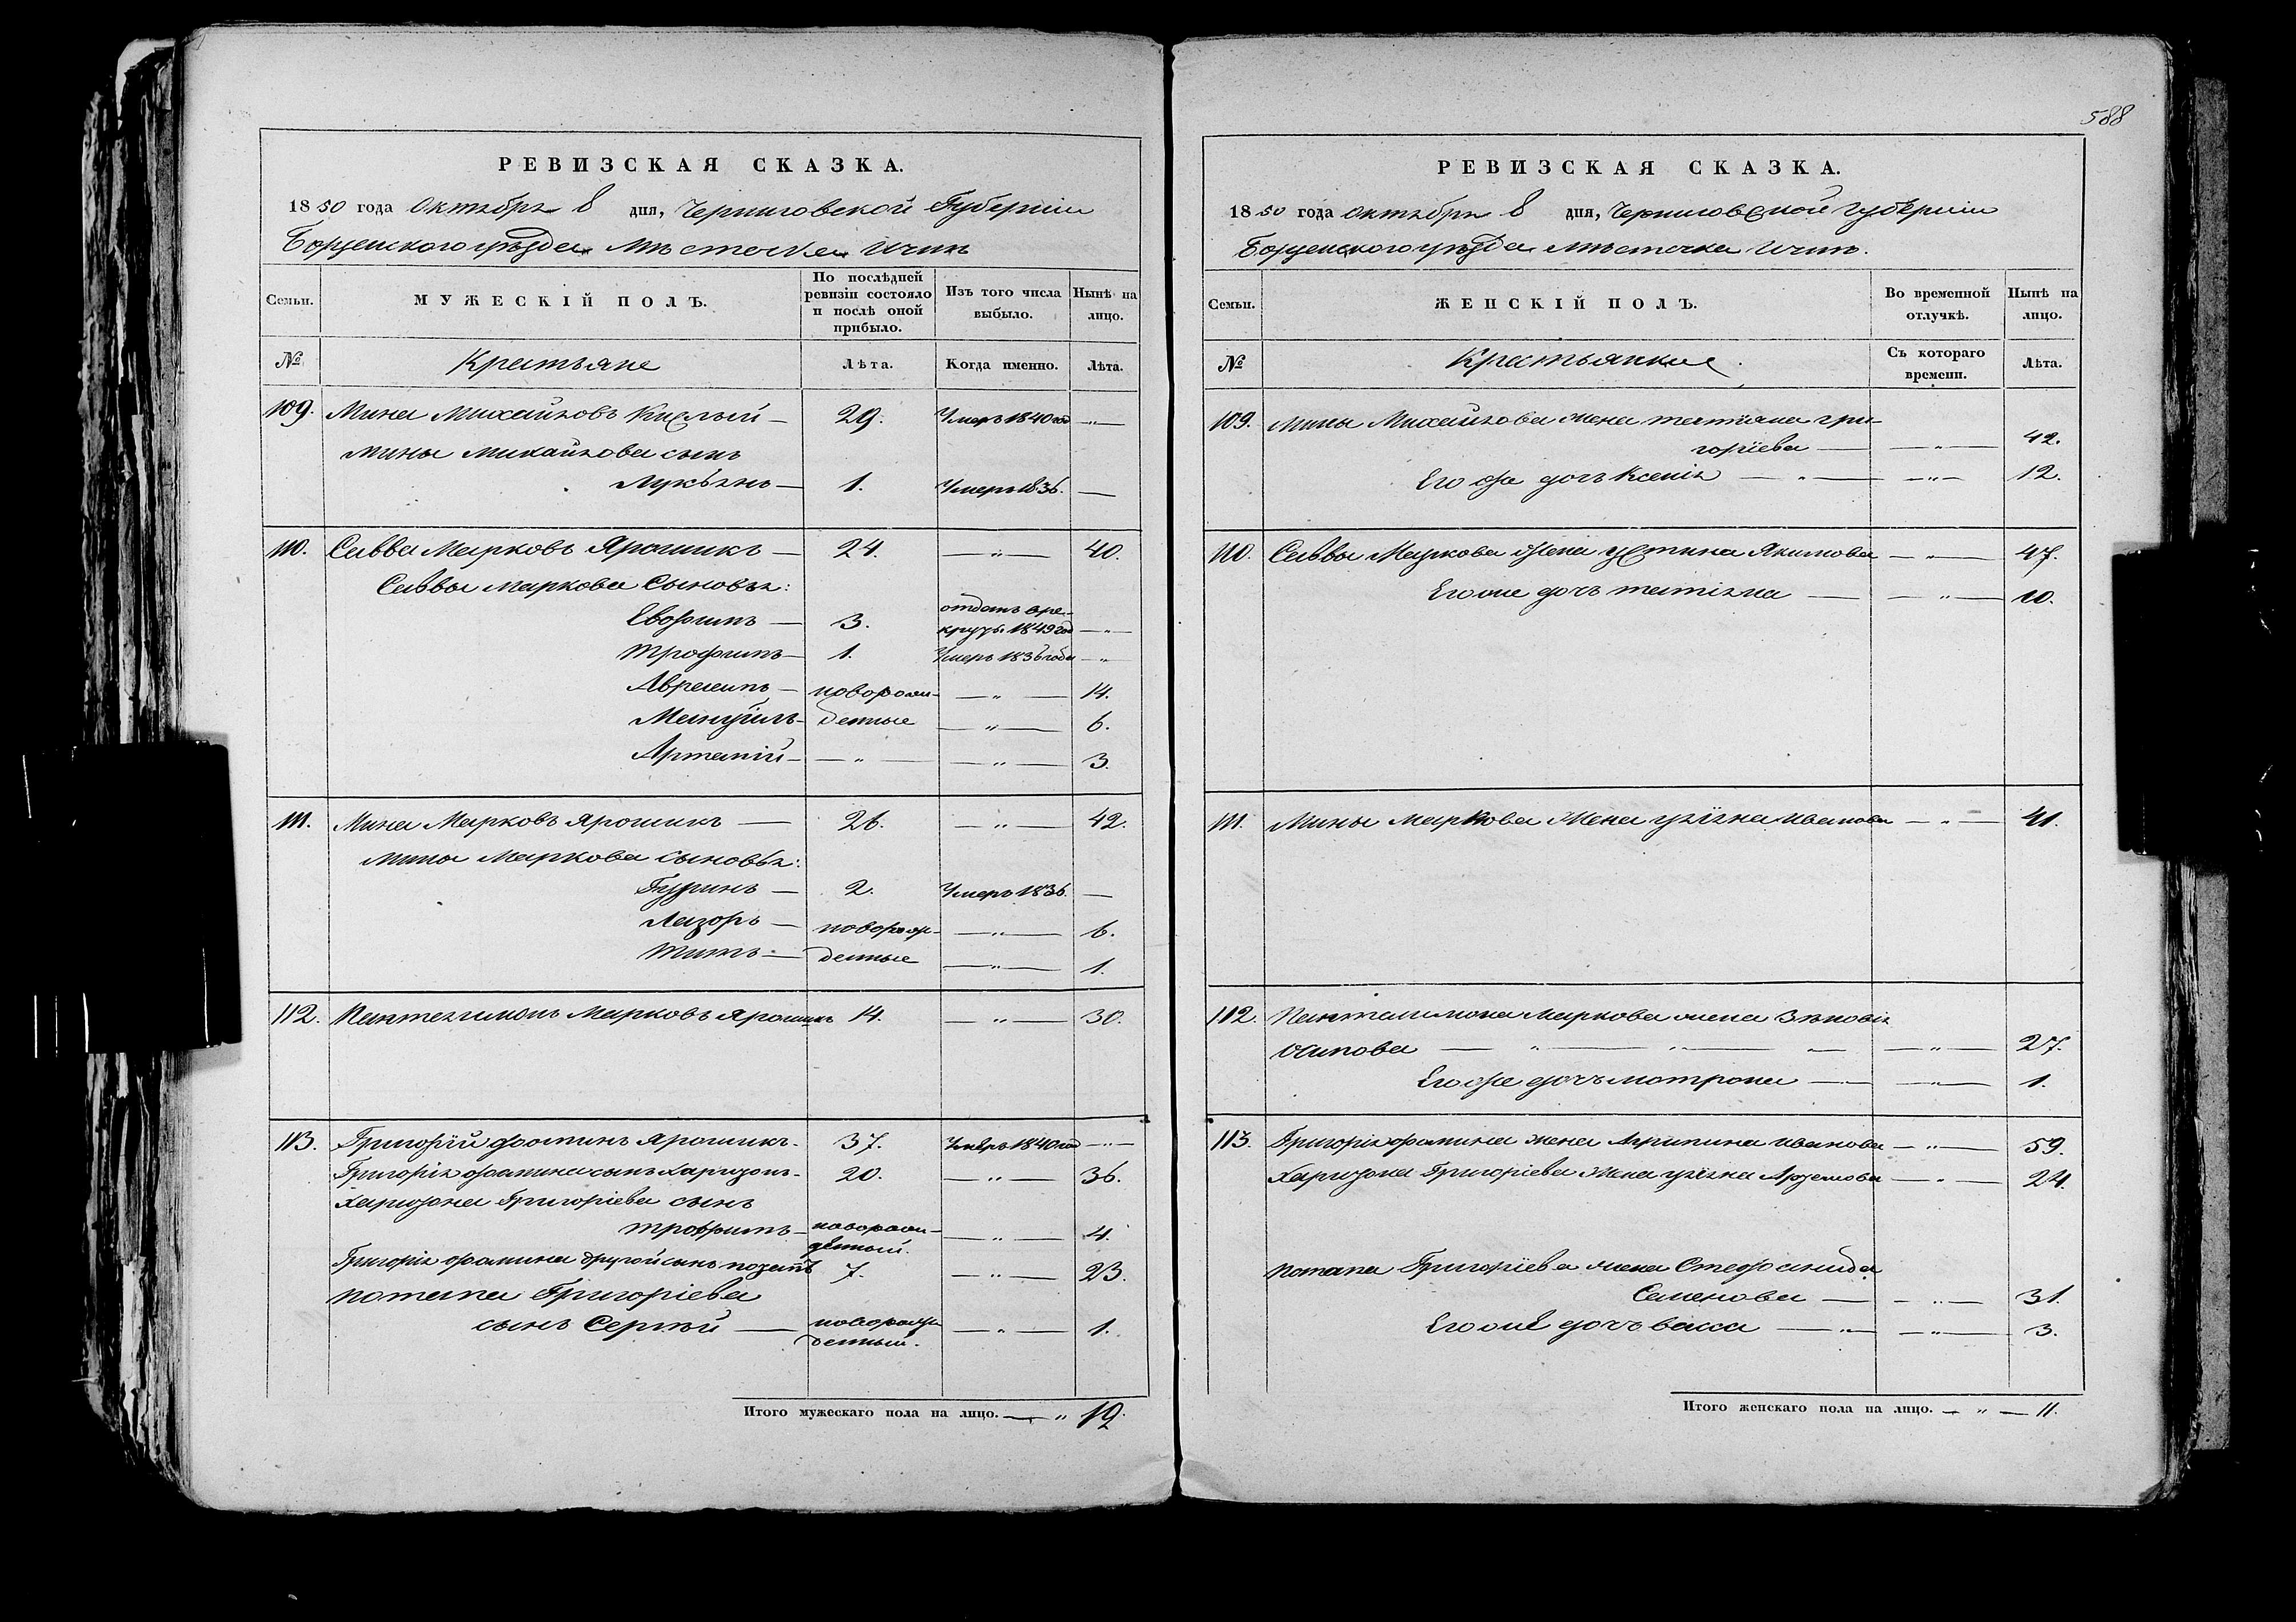 588
РЕВИЗСКАЯ СКАЗКА.
1850 года Октября 8 дня, Черниговской Губерніи
Борзенского уѣзда Мѣстечка Ични
Семьи.
МУЖЕСКІЙ ПОЛЪ.
По послѣдней ревизіи состояло и послѣ оной прибыло.
Изъ того числа выбыло.
Нынѣ на лицо.
№
Крестьяне
Лѣта.
Когда именно.
Лѣта.
109. Мина Михайловъ Кислый — 29. Умеръ 1840 год — " —
Мины Михайлова сынъ
Лукьянъ — 1. Умеръ 1836. —
110. Савва Марковъ Ярошикъ — 24. — " — 40.
Саввы Маркова Сыновья:
Евфимъ — 3. отданъ в ре-
круты 1849 год — " —
Трофимъ — 1. Умеръ 1836 года — "
Аврамъ — новорож- — " — 14.
Мануйлъ — денные — " — 6.
Артемій — — " — — " — 3.
111. Мина Марковъ Ярошикъ — 26. — " — 42.
Мины Маркова сыновья:
Гуринъ — 2. Умеръ 1836. —
Лазоръ — новорож- — " — 6.
Титъ — денные — " — 1.
112. Пантелимонъ Марковъ Ярошикъ 14. — " — 30.
113. Григорій Фоминъ Ярошикъ. 37. Умеръ 1840 год — " —
Григорія Фомина сынъ Харитонъ. 20. — " — 36.
Харитона Григоріева сынъ
Трофимъ — новорож-
денный. — " — 4.
Григорія Фомина другой сынъ Потапъ 7. — " — 23.
Потапа Григоріева
сынъ Сергѣй — новорож-
денный. — " — 1.
Итого мужескаго пола на лицо. — " 12.
РЕВИЗСКАЯ СКАЗКА.
1850 года Октября 8 дня, Черниговской Губерніи
Борзенского уѣзда Мѣстечка Ични.
Семьи.
ЖЕНСКІЙ ПОЛЪ.
Во временной отлучкѣ.
Нынѣ на лицо.
№
Крестьянки
Съ котораго времени.
Лѣта.
109. Мины Михайлова жена Татіяна Гри-
горіева — — " — 42.
Его же дочь Ксенія — " — — " — 12.
110. Саввы Маркова жена Устина Якимова — " — 47.
Его же дочь Татіяна — — " — 10.
111. Мины Маркова Жена Уліяна Иванова — " — 41.
112. Пантелимона Маркова жена Зѣновія
Осипова — " — " — — " — 27.
Его же дочь Мотрона — — " — 1.
113. Григорія Фомина жена Агрипина Иванова — " — 59.
Харитона Григоріева Жена Уліяна Артемова — " — 24.
Потапа Григоріева жена Стефанида
Семенова — — " — 31.
Его же дочь Васса — " — — " — 3.
Итого женскаго пола на лицо. — " — 11.